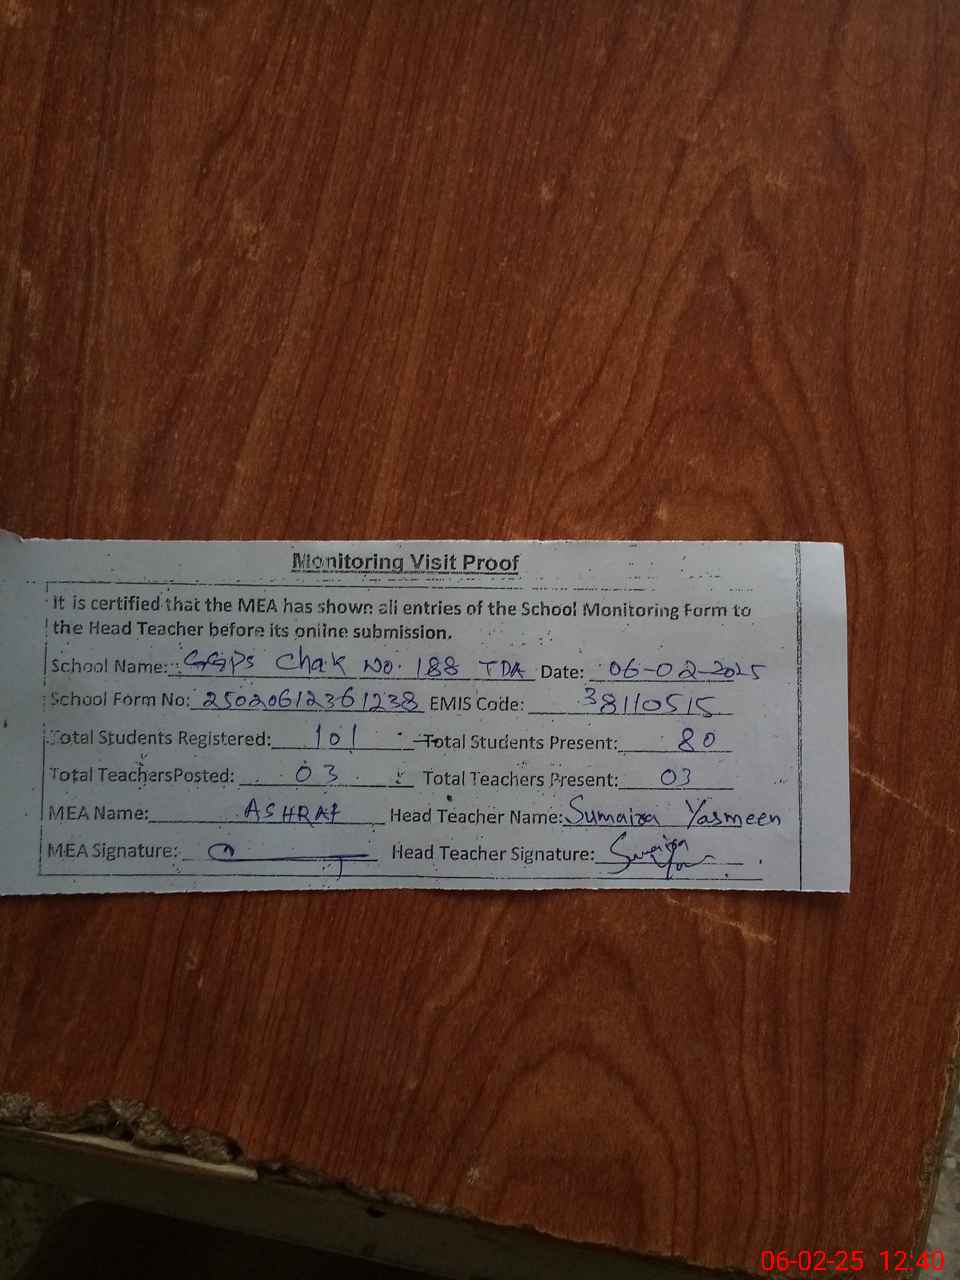 Monitoring Visit Proof
It is certified that the MEA has shown all entries of the School Monitoring Form to
the Head Teacher before its online submission.
School Name: GGPS Chak No. 188 TDA Date: 06-02-2025
School Form No: 25020612361238 EMIS Code: 38110515
Total Students Registered: 101 Total Students Present: 80
Total TeachersPosted: 03 Total Teachers Present: 03
MEA Name: ASHRAf Head Teacher Name: Sumaira Yasmeen
MEA Signature: Head Teacher Signature: Sumaira
06-02-25 12:40